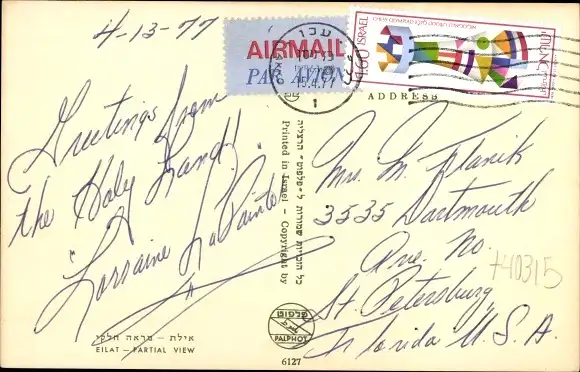 4-13-77
AIRMAIL
PAR AVION
עכו
15.4.77
1
1.60 ISRAEL
ADDRESS
Greetings from
the Holy Land!
Lorraine LaPointe
Mrs. M. Flanik
3535 Dartmouth
Ave. No.
St. Petersburg,
Florida U.S.A.
+40315
כל הזכויות שמורות ל"פלפוט" הרצליה
Printed in Israel – Copyright by
פלפוט
PALPHOT
אילת – מראה חלקי
EILAT – PARTIAL VIEW
6127